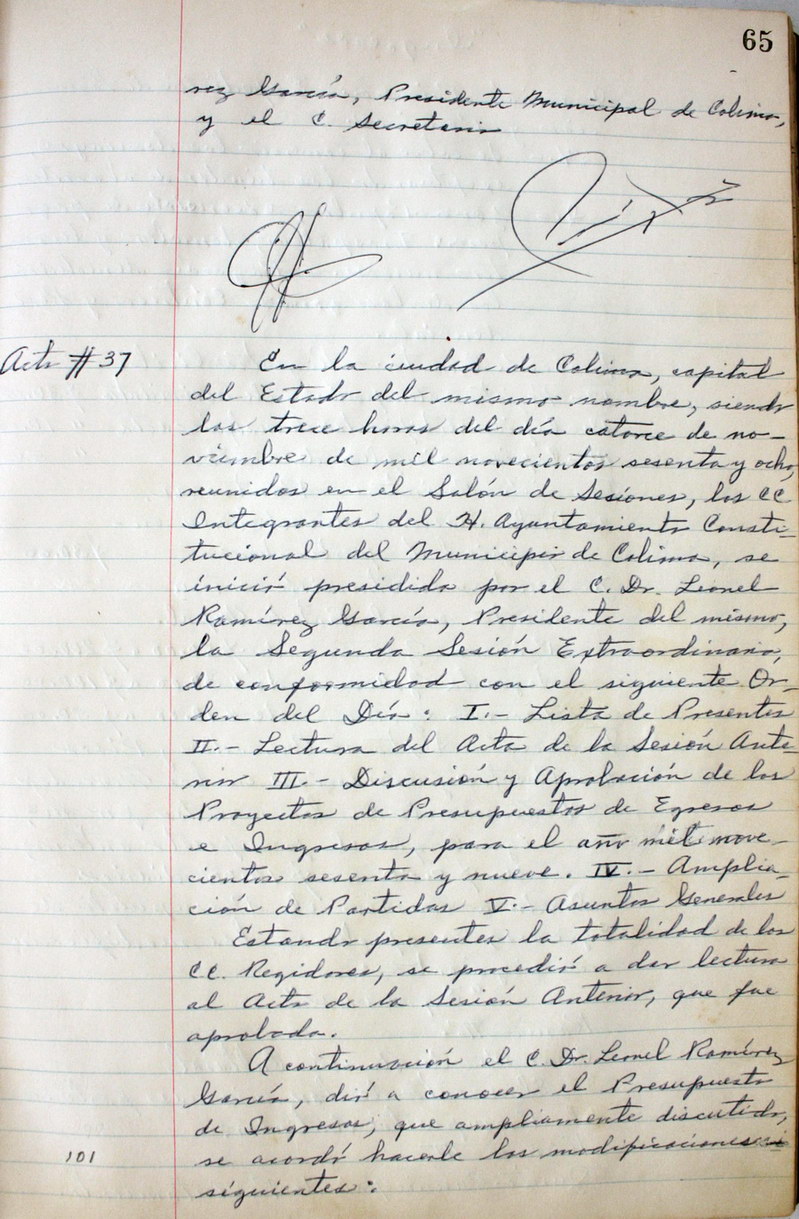 65
rez García, Presidente Municipal de Colima,
y el C. Secretario
Acta #37
En la ciudad de Colima, capital
del Estado del mismo nombre, siendo
las trece horas del día catorce de no-
viembre de mil novecientos sesenta y ocho,
reunidos en el Salón de Sesiones, los CC
Integrantes del H. Ayuntamiento Consti-
tucional del Municipio de Colima, se
inició presidida por el C. Dr. Leonel
Ramírez García, Presidente del mismo,
la Segunda Sesión Extraordinaria,
de conformidad con el siguiente Or-
den del Día: I.- Lista de Presentes
II.- Lectura del Acta de la Sesión Ante-
rior III.- Discusión y Aprobación de los
Proyectos de Presupuestos de Egresos
e Ingresos, para el año mil nove-
cientos sesenta y nueve. IV.- Amplia-
ción de Partidas V.- Asuntos Generales
Estando presentes la totalidad de los
CC. Regidores, se procedió a dar lectura
al Acta de la Sesión Anterior, que fue
aprobada.
A continuación el C. Dr. Leonel Ramírez
García, dió a conocer el Presupuesto
de Ingresos, que ampliamente discutido,
se acordó hacerle las modificaciones
siguientes:
101